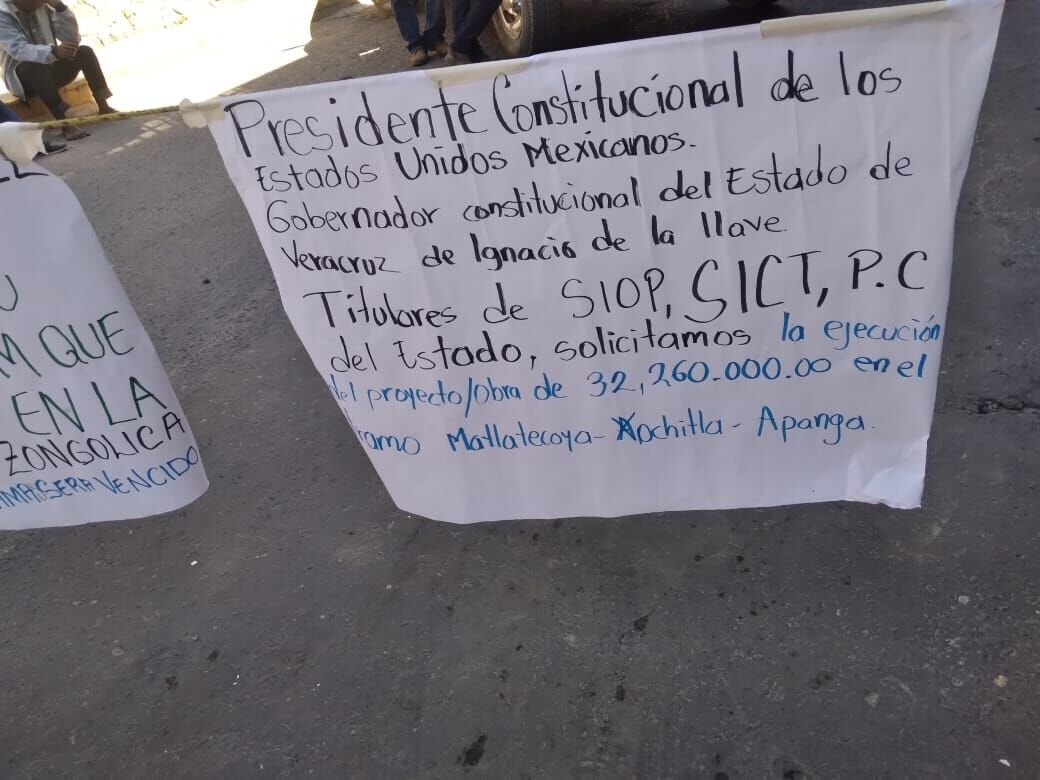 U
M QUE
EN LA
ZONGOLICA
SERA VENCIDO
Presidente Constitucional de los
Estados Unidos Mexicanos.
Gobernador constitucional del Estado de
Veracruz de Ignacio de la llave.
Titulares de SIOP, SICT, P.C
del Estado, solicitamos la ejecución
del proyecto/obra de 32,260.000.00 en el
tramo Matlatecoya - Xochitla - Apanga.